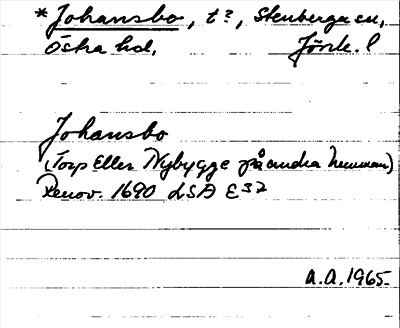 * Johansbo, t?, Stenberga sn,
Östra hd, Jönk. l
Johansbo
(Torp Eller Nybygge på andra Numman)
Renov. 1690 LSA E32
A.A. 1965